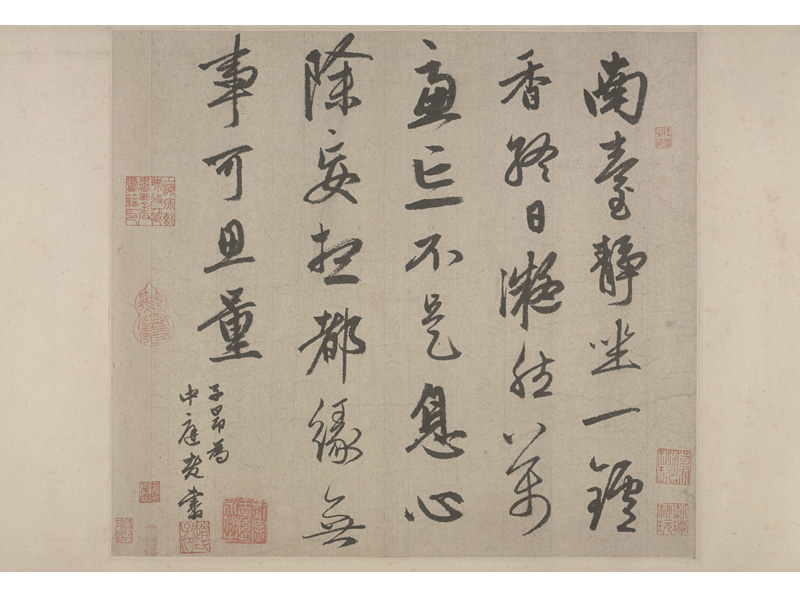 南臺靜坐一鑪
香終日凝然萬
慮亡不是息心
除妄想都緣無
事可思量
子昂為
中庭老書